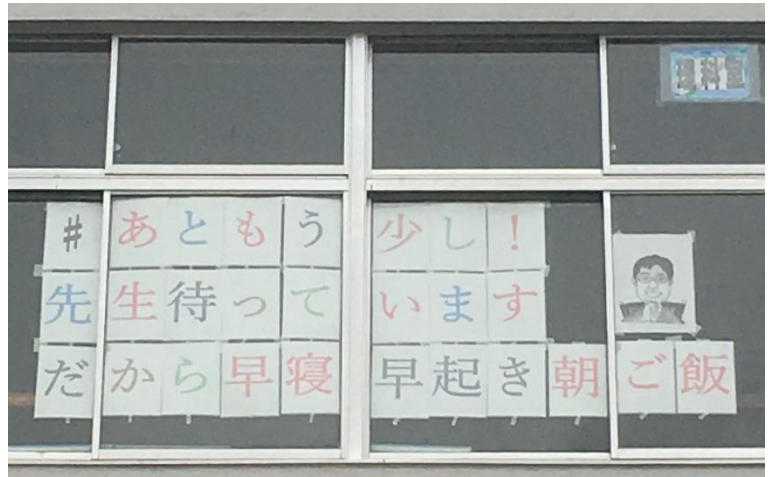 理科室
#あともう少し!
先生待っています
だから早寝早起き朝ご飯